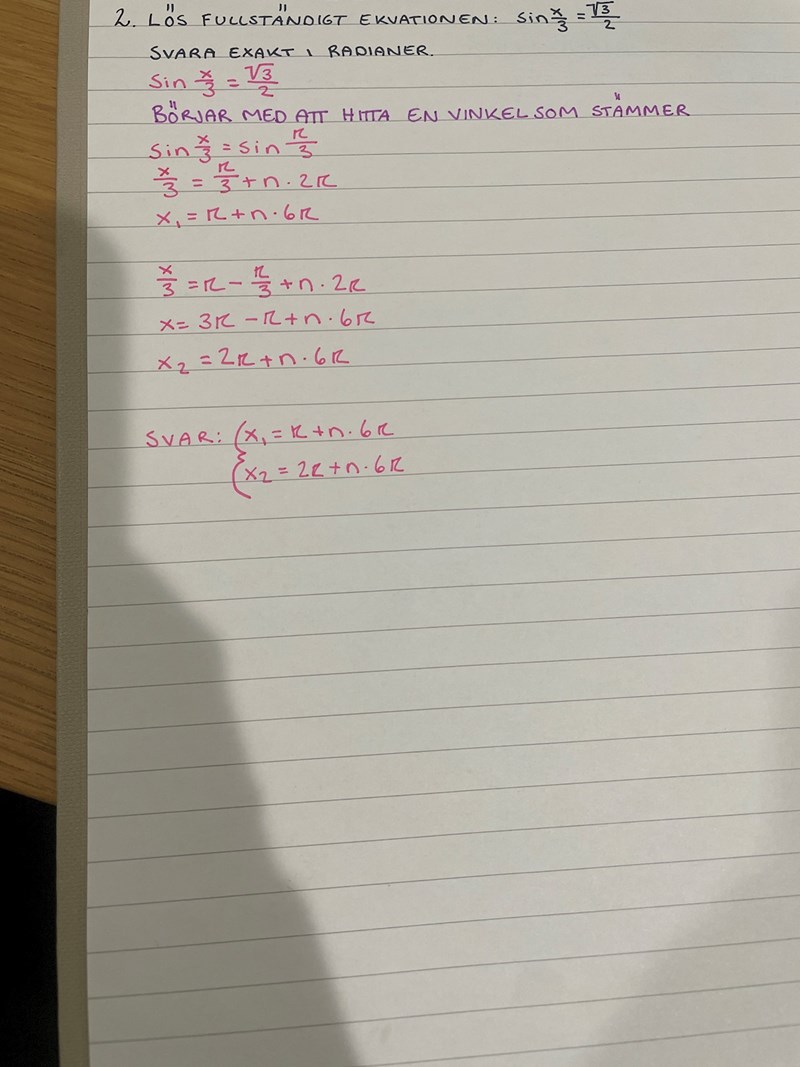 2. LÖS FULLSTÄNDIGT EKVATIONEN: sin x/3 = √3/2
SVARA EXAKT I RADIANER.
sin x/3 = √3/2
BÖRJAR MED ATT HITTA EN VINKEL SOM STÄMMER
sin x/3 = sin π/3
x/3 = π/3 + n · 2π
x₁ = π + n · 6π
x/3 = π - π/3 + n · 2π
x = 3π - π + n · 6π
x₂ = 2π + n · 6π
SVAR: { x₁ = π + n · 6π
x₂ = 2π + n · 6π